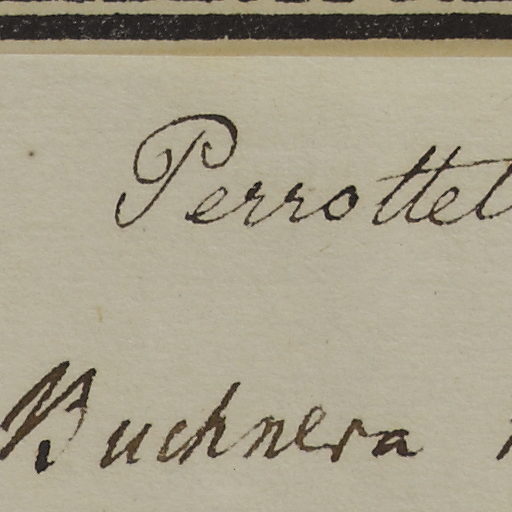 Perrottet
Buchnera